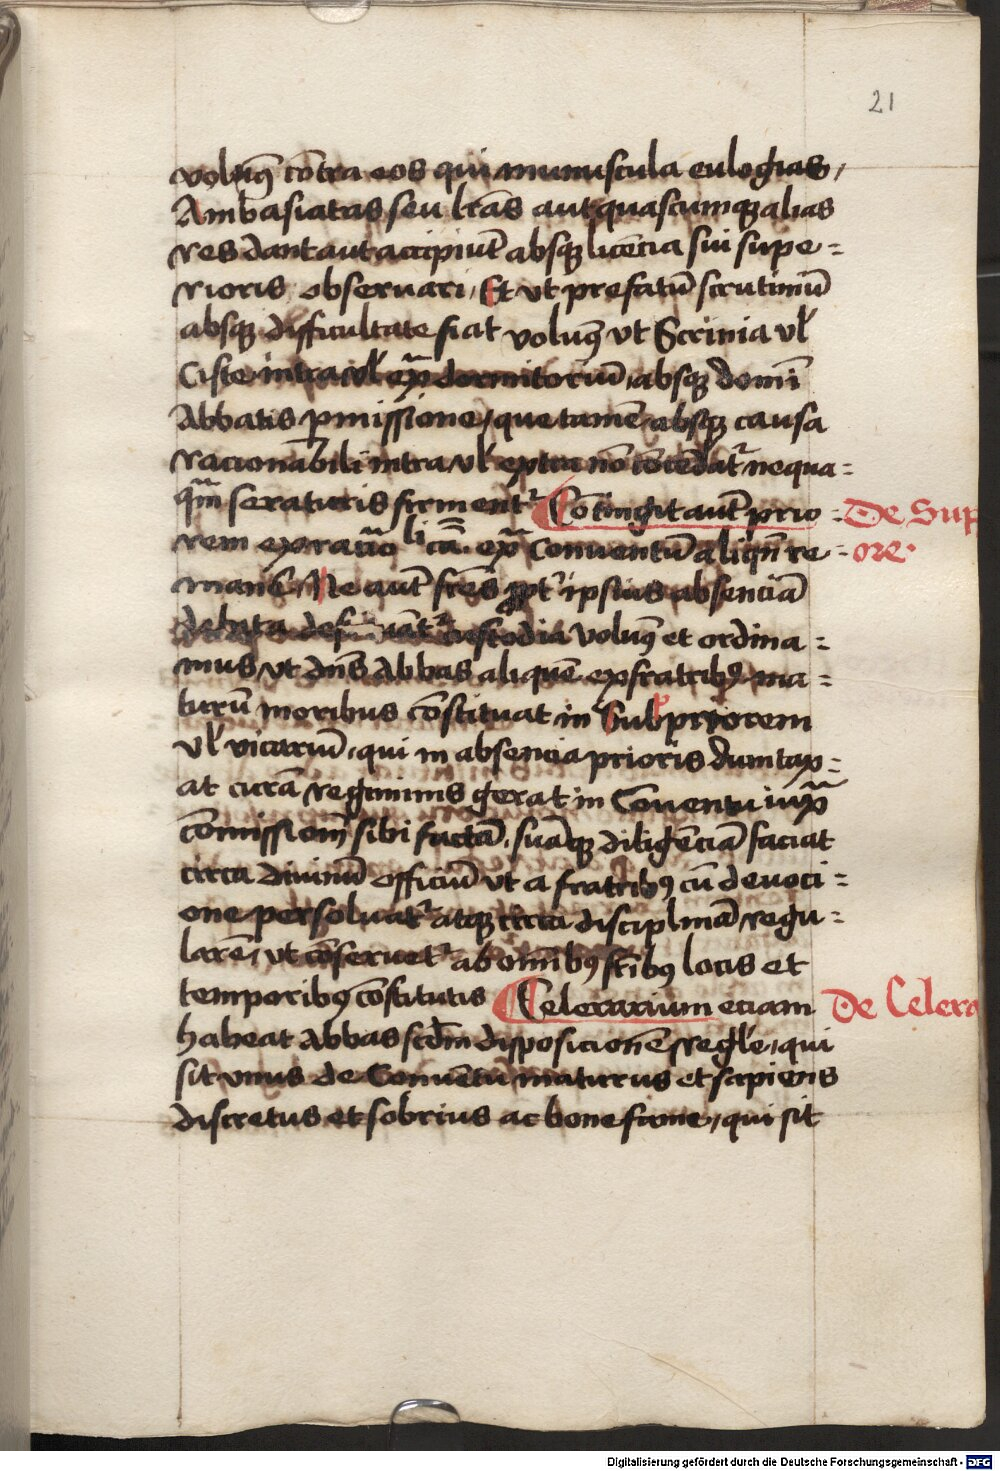 21
volumꝰ cōtra eos qui munuscula eulogias,
Ambasiatas seu lr̄as aut quascumqꝫ alias
res dant aut accipiūt absqꝫ licēcia sui supe=
rioris obseruari, Et vt prefatū scrutiniū
absqꝫ difficultate fiat volumꝰ vt Scrinia vl̄
Ciste intra vl̄ ex̄ dormitoriū, absqꝫ domī
Abbatis pmissione, que tamē absqꝫ causa
racionabili intra vl̄ extra nō cōcedāt᷑ nequa=
qm̄ seraturis firment᷑ Cōtingit aut̄ prio=
rem ex racōnabli cā ex̄ Conuentū aliqn̄ re=
manē Ne aut̄ fr̄es ꝓpt᷑ ipsius absenciā
debita custodia volumꝰ et ordina=
mus vt dn̄s Abbas aliquē ex fratribꝰ ma=
turū moribus cōstituat in Subpriorem
vl̄ vicariū, qui in absencia prioris dumtax=
at curā regiminis gerat in Conuentu iux̄
cōmissionē sibi factā, suāqꝫ diligēciā faciat
circa diuinū officiū vt a fratribꝰ cū deuoci=
one persoluat᷑ atqꝫ circa disciplinā regu=
larē, vt cōseruet᷑ ab omībꝰ fr̄ibꝰ locis et
temporibꝰ cōstitutis Celerarium eciam
habeat Abbas scdm̄ disposicionē regl̄e, qui
sit vnus de Conuētu maturus et sapiens
discretus et sobrius ac bone fame, qui sit
De Sup
ore.
De Celera
Digitalisierung gefördert durch die Deutsche Forschungsgemeinschaft - DFG